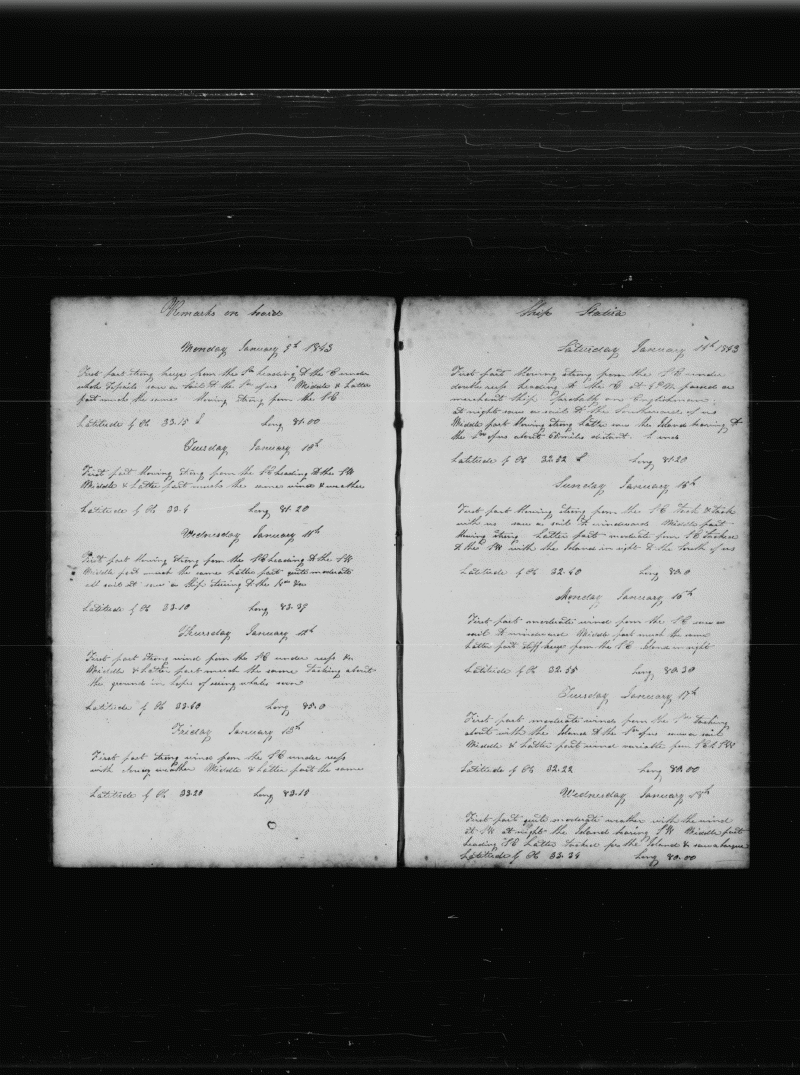 Remarks on board
Monday January 9th 1843
First part strong breeze from the heading to the E under
whole Topsails saw a sail to the of us Middle & Latter
part much the same blowing strong from the SE
Latitude by Ob 33.15 S Long 81.00
Tuesday January 10th
First part blowing strong from the SE heading to the SW
Middle & Latter part much the same wind & weather
Latitude by Ob 33.4 Long 81.20
Wednesday January 11th
First part blowing strong from the SE heading to the SW
Middle part much the same Latter part quite moderate
all sail set saw a Ship steering to the
Latitude by Ob 33.10 Long 82.37
Thursday January 12th
First part strong wind from the SE under reefs &c
Middle & Latter part much the same Tacking about
the ground in hopes of seeing whales soon
Latitude by Ob Long
Friday January 13th
First part strong wind from the SE under reefs
with weather Middle & Latter parts the same
Latitude by Ob 33.20 Long 82.10
Ship
Saturday January 14th 1843
First part blowing strong from the SE under
double reefs heading to the E at PM passed a
merchant ship Probably an Englishman
at night saw a sail to the Southward of us
Middle part blowing strong Latter saw the Island bearing to
the of us about miles distant
Latitude by Ob 32.52 S Long 81.20
Sunday January 15th
First part blowing strong from the SE Tack & Tack
with us saw a sail to windward Middle part
blowing strong Latter part moderate from SE Tacked
to the SW with the Island in sight to the South of us
Latitude by Ob 32.40 Long 80.0
Monday January 16th
First part moderate wind from the SE saw a
sail to windward Middle part much the same
Latter part stiff breeze from the SE Island in sight
Latitude by Ob 32.55 Long 80.30
Tuesday January 17th
First part moderate winds from the tacking
about with the Island to the of us saw a sail
Middle & Latter part wind variable from
Latitude by Ob 32.22 Long 80.00
Wednesday January 18th
First part quite moderate weather with the wind
at SW at night the Island bearing SW Middle part
heading Latter Tacked for the Island & saw a barque
Latitude by Ob 32.24 Long 80.00